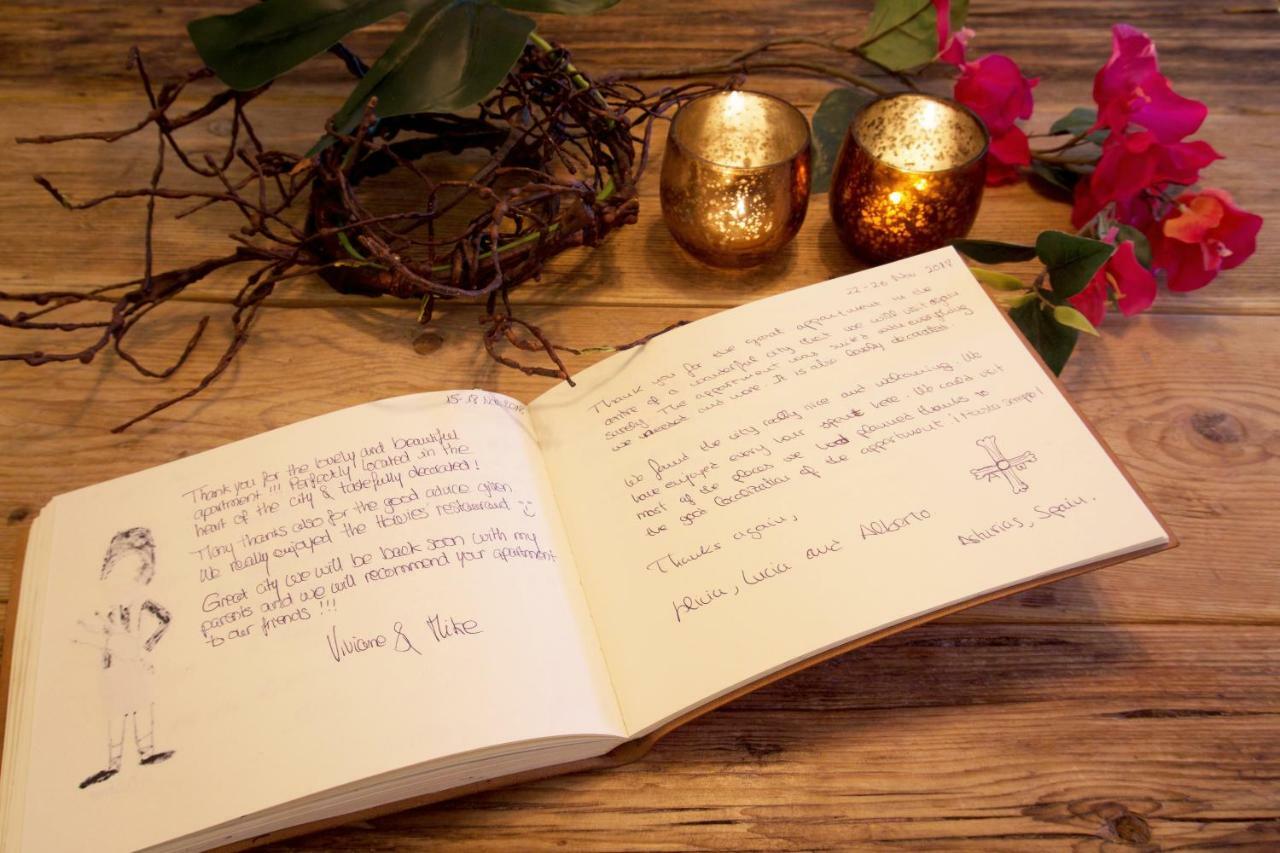 15-18 Nov
Thank you for the lovely and beautiful
apartment !!! Perfectly located in the
heart of the city & tastefully decorated!
Many thanks also for the good advice given
We really enjoyed the Howies' restaurant
Great city we will be back soon with my
parents and we will recommend your apartment
to our friends !!!
Viviane & Mike
22-26 Nov
Thank you for the good appartment in the
centre of a wonderful city that we will visit again
surely. The appartment was suited with everything
we needed and more. It is also lovely decorated.
We found the city really nice and welcoming. We
have enjoyed every hour spent here. We could visit
most of the places we had planned thanks to
the good localization of the appartment. ¡Hasta siempre!
Thanks again,
Lucia and Alberto
Asturias, Spain.